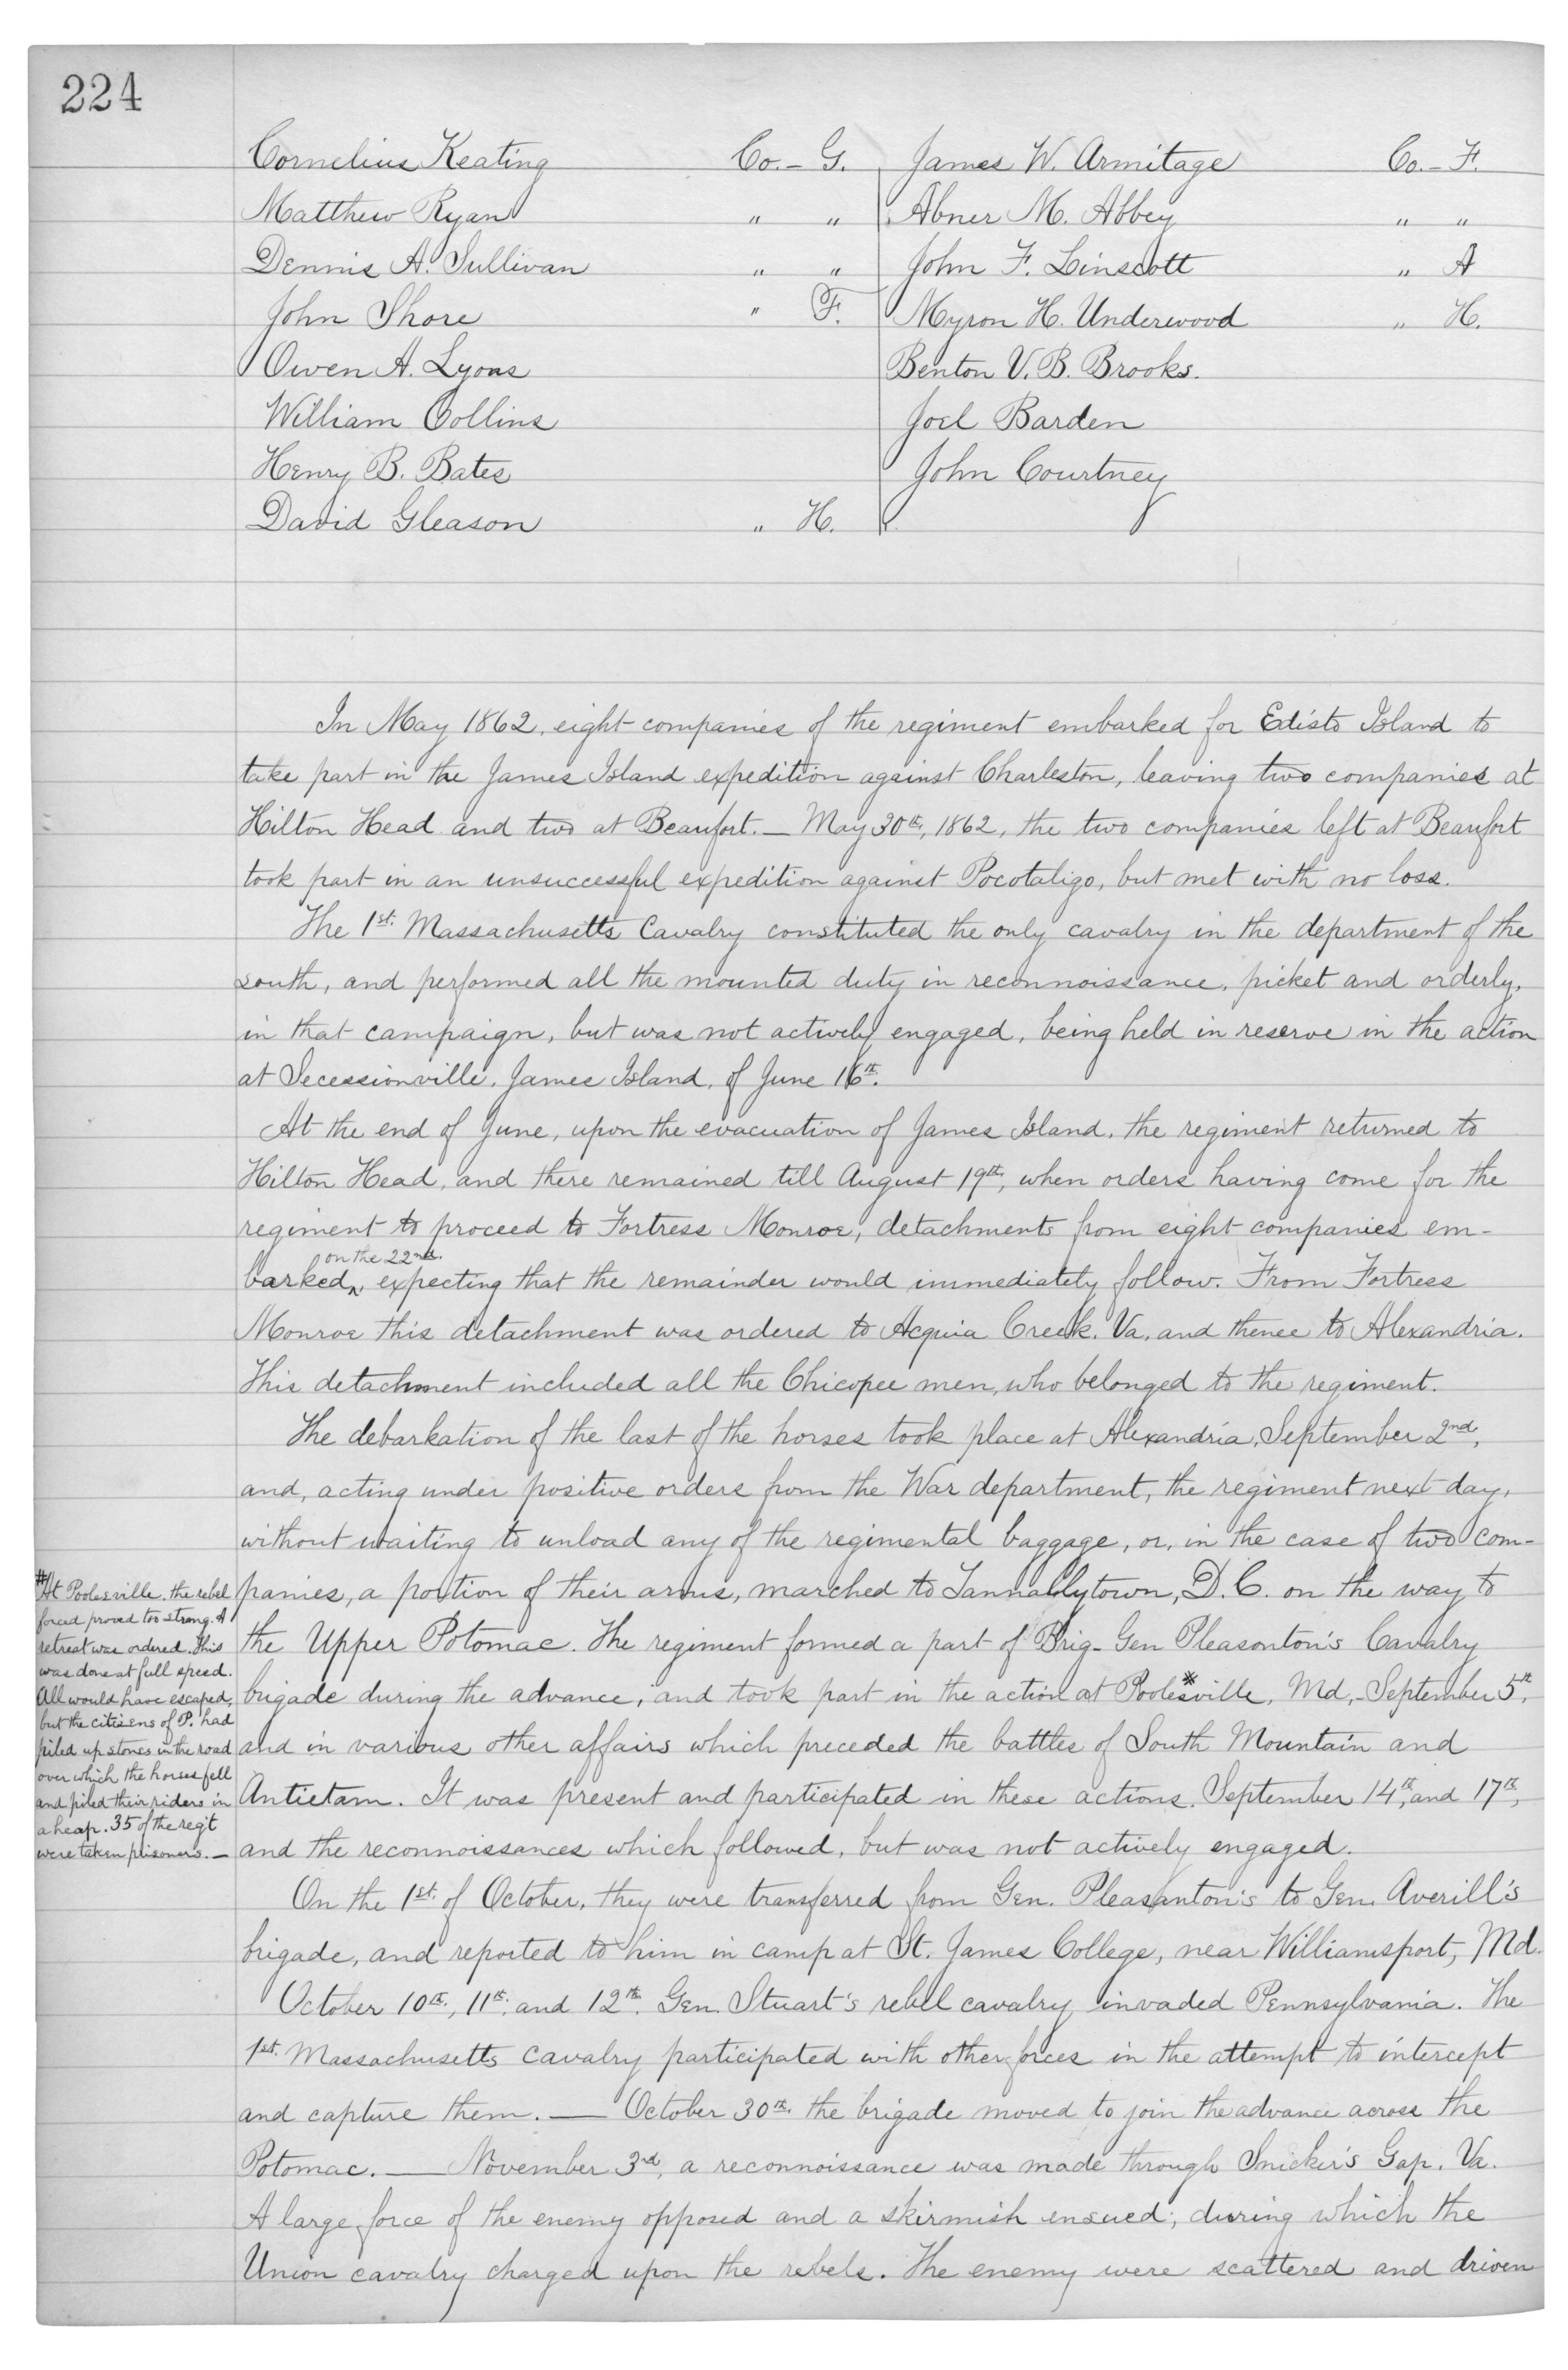 224
Cornelius Keating Co. - G. James W. Armitage Co. - F.
Matthew Ryan " " Abner M. Abbey " "
Dennis A. Sullivan " " John F. Linscott " A
John Shore " F. Myron H. Underwood " H.
Owen A. Lyons Benton V. B. Brooks.
William Collins Joel Barden
Henry B. Bates John Courtney
David Gleason " H.
In May 1862, eight companies of the regiment embarked for Edisto Island to
take part in the James Island expedition against Charleston, leaving two companies at
Hilton Head and two at Beaufort. — May 30th, 1862, the two companies left at Beaufort
took part in an unsuccessful expedition against Pocotaligo, but met with no loss.
The 1st. Massachusetts Cavalry constituted the only cavalry in the department of the
south, and performed all the mounted duty in reconnoissance, picket and orderly,
in that campaign, but was not actively engaged, being held in reserve in the action
at Secessionville, James Island, of June 16th.
At the end of June, upon the evacuation of James Island, the regiment returned to
Hilton Head, and there remained till August 19th, when orders having come for the
regiment to proceed to Fortress Monroe, detachments from eight companies em-
on the 22nd.
barked, expecting that the remainder would immediately follow. From Fortress
Monroe this detachment was ordered to Acquia Creek, Va. and thence to Alexandria.
This detachment included all the Chicopee men, who belonged to the regiment.
The debarkation of the last of the horses took place at Alexandria, September 2nd,
and, acting under positive orders from the War department, the regiment next day,
without waiting to unload any of the regimental baggage, or, in the case of two com-
panies, a portion of their arms, marched to Tannallytown, D. C. on the way to
the Upper Potomac. The regiment formed a part of Brig-Gen Pleasonton's Cavalry
brigade during the advance, and took part in the action at Poolesville*, Md, - September 5th,
and in various other affairs which preceded the battles of South Mountain and
Antietam. It was present and participated in these actions, September 14th, and 17th,
and the reconnoissances which followed, but was not actively engaged.
*At Poolesville, the rebel
forced proved too strong. A
retreat was ordered. This
was done at full speed.
All would have escaped,
but the citizens of P. had
piled up stones in the road
over which the horses fell
and piled their riders in
a heap. 35 of the reg't
were taken prisoners. —
On the 1st. of October, they were transferred from Gen. Pleasanton's to Gen. Averill's
brigade, and reported to him in camp at St. James College, near Williamsport, Md.
October 10th, 11th, and 12th. Gen. Stuart's rebel cavalry invaded Pennsylvania. The
1st. Massachusetts cavalry participated with other forces in the attempt to intercept
and capture them. — October 30th, the brigade moved to join the advance across the
Potomac. — November 3rd, a reconnoissance was made through Snicker's Gap, Va.
A large force of the enemy opposed and a skirmish ensued; during which the
Union cavalry charged upon the rebels. The enemy were scattered and driven